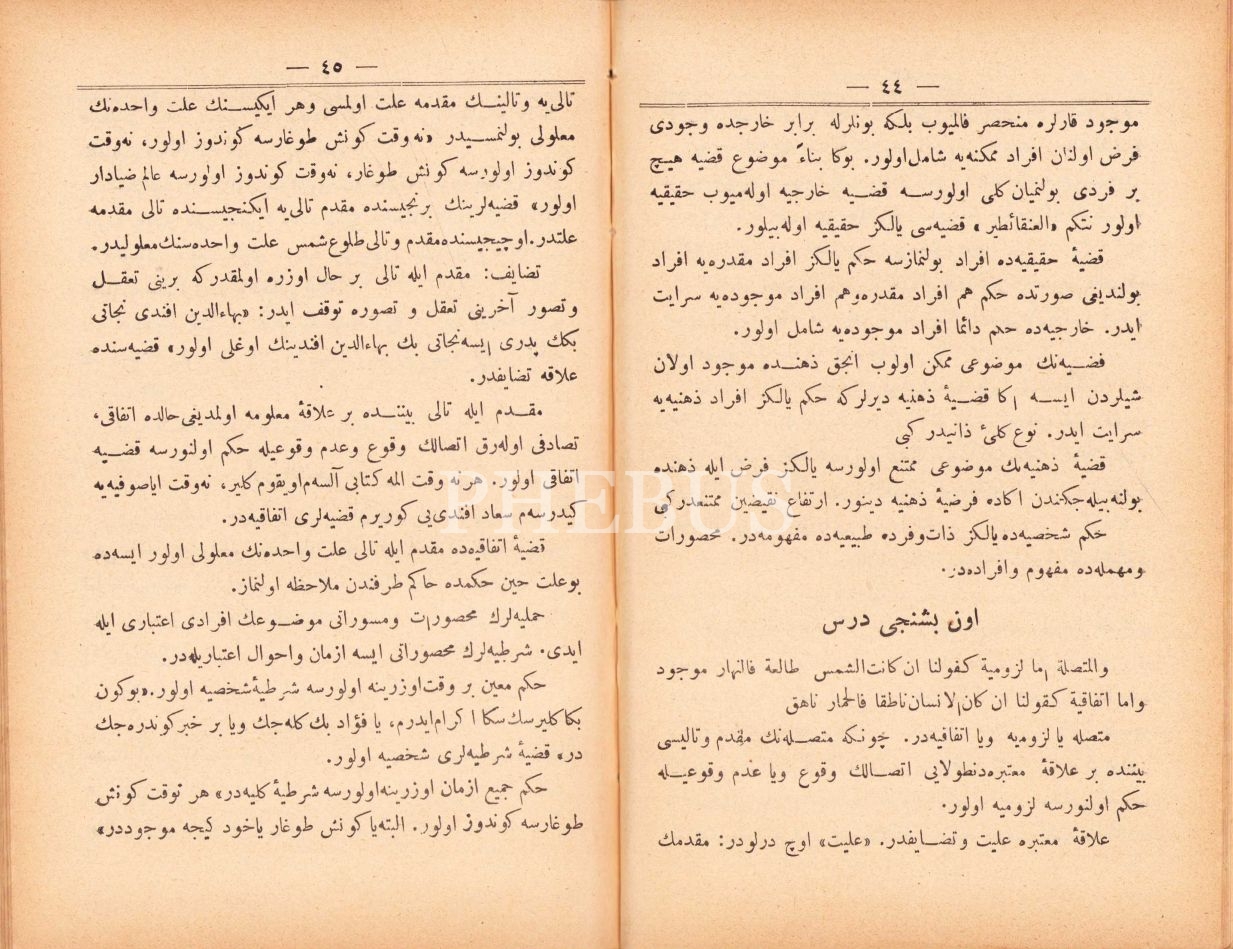 — ٤٤ —
موجود قارلره منحصر قالميوب بلكه بونلرله برابر خارجده وجودى
فرض اولنان افراد ممكنه‌يه شامل اولور. بوكا بناءً موضوع قضيه هيچ
بر فردى بولنميان كلى اولورسه قضيه خارجيه اوله‌ميوب حقيقيه
اولور نتكم «العنقا طير» قضيه‌سى يالكز حقيقيه اوله‌بيلور.
قضيۀ حقيقيه‌ده افراد بولنمازسه حكم يالكز افراد مقدره‌يه افراد
بولنديغى صورتده حكم هم افراد مقدره‌و‌هم افراد موجوده‌يه سرايت
ايدر. خارجيه‌ده حكم دائما افراد موجوده‌يه شامل اولور.
قضيه‌نك موضوعى ممكن اولوب انجق ذهنده موجود اولان
شيلردن ايسه اكا قضيۀ ذهنيه ديرلركه حكم يالكز افراد ذهنيه‌يه
سرايت ايدر. نوع كلىء ذانيدر كبى
قضيۀ ذهنيه‌نك موضوعى ممتنع اولورسه يالكز فرض ايله ذهنده
بولنه‌بيله‌جكندن اكاده فرضيۀ ذهنيه دينور. ارتفاع نقيضين ممتنعدر كبى
حكم شخصيه‌ده يالكز ذات وفرده طبيعيه‌ده مفهومه‌در. محصورات
ومهمله‌ده مفهوم وافراده‌در.
اون بشنجى درس
والمتصلة اما لزومية كقولنا ان كانت الشمس طالعة فالنهار موجود
واما اتفاقية كقولنا ان كان الانسان ناطقا فالحمار ناهق
متصله يا لزوميه ويا اتفاقيه‌در. چونكه متصله‌نك مقدم وتاليسى
بيننده بر علاقۀ معتبره‌دن‌طولايى اتصالك وقوع ويا عدم وقوعيله
حكم اولنورسه لزوميه اولور.
علاقۀ معتبره عليت وتضايفدر. «عليت» اوچ درلودر: مقدمك
— ٤٥ —
تالى‌يه وتالينك مقدمه علت اولمسى وهر ايكيسنك علت واحده‌نك
معلولى بولنمسيدر «نه‌وقت كونش طوغارسه كوندوز اولور، نه‌وقت
كوندوز اولورسه كونش طوغار، نه‌وقت كوندوز اولورسه عالم ضيادار
اولور» قضيه‌لرينك برنجيسنده مقدم تالى‌يه ايكنجيسنده تالى مقدمه
علتدر. اوچيجيسنده‌مقدم وتالى طلوع شمس علت واحده‌سنك‌معلوليدر.
تضايف: مقدم ايله تالى بر حال اوزره اولمقدركه برينى تعقل
وتصور آخرينى تعقل و تصوره توقف ايدر: «بهاءالدين افندى نجاتى
بكك پدرى ايسه نجاتى بك بهاءالدين افندينك اوغلى اولور» قضيه‌سنده
علاقه تضايفدر.
مقدم ايله تالى بيننده بر علاقۀ معلومه اولمديغى حالده اتفاقى،
تصادفى اوله‌رق اتصالك وقوع وعدم وقوعيله حكم اولنورسه قضيه
اتفاقى اولور. هرنه وقت المه كتابى آلسه‌م اويقوم كلير، نه‌وقت اياصوفيه‌يه
كيدرسه‌م سعاد افندى‌يى كوريرم قضيه‌لرى اتفاقيه‌در.
قضيۀ اتفاقيه‌ده مقدم ايله تالى علت واحده‌نك معلولى اولور ايسه‌ده
بو علت حين حكمده حاكم طرفندن ملاحظه اولنماز.
حمليه‌لرك محصورات ومسوراتى موضوعك افرادى اعتبارى ايله
ايدى. شرطيه‌لرك محصوراتى ايسه ازمان واحوال اعتباريله‌در.
حكم معين بر وقت اوزرينه اولورسه شرطيۀ شخصيه اولور. «بوكون
بكا كليرسك سكا اكرام ايدرم، يا فؤاد بك كله‌جك ويا بر خبر كوندره‌جك
در» قضيۀ شرطيه‌لرى شخصيه اولور.
حكم جميع ازمان اوزرينه اولورسه شرطيۀ كليه‌در» هر نوقت كونش
طوغارسه كوندوز اولور. البته يا كونش طوغار ياخود كيجه موجوددر»
PHEBUS